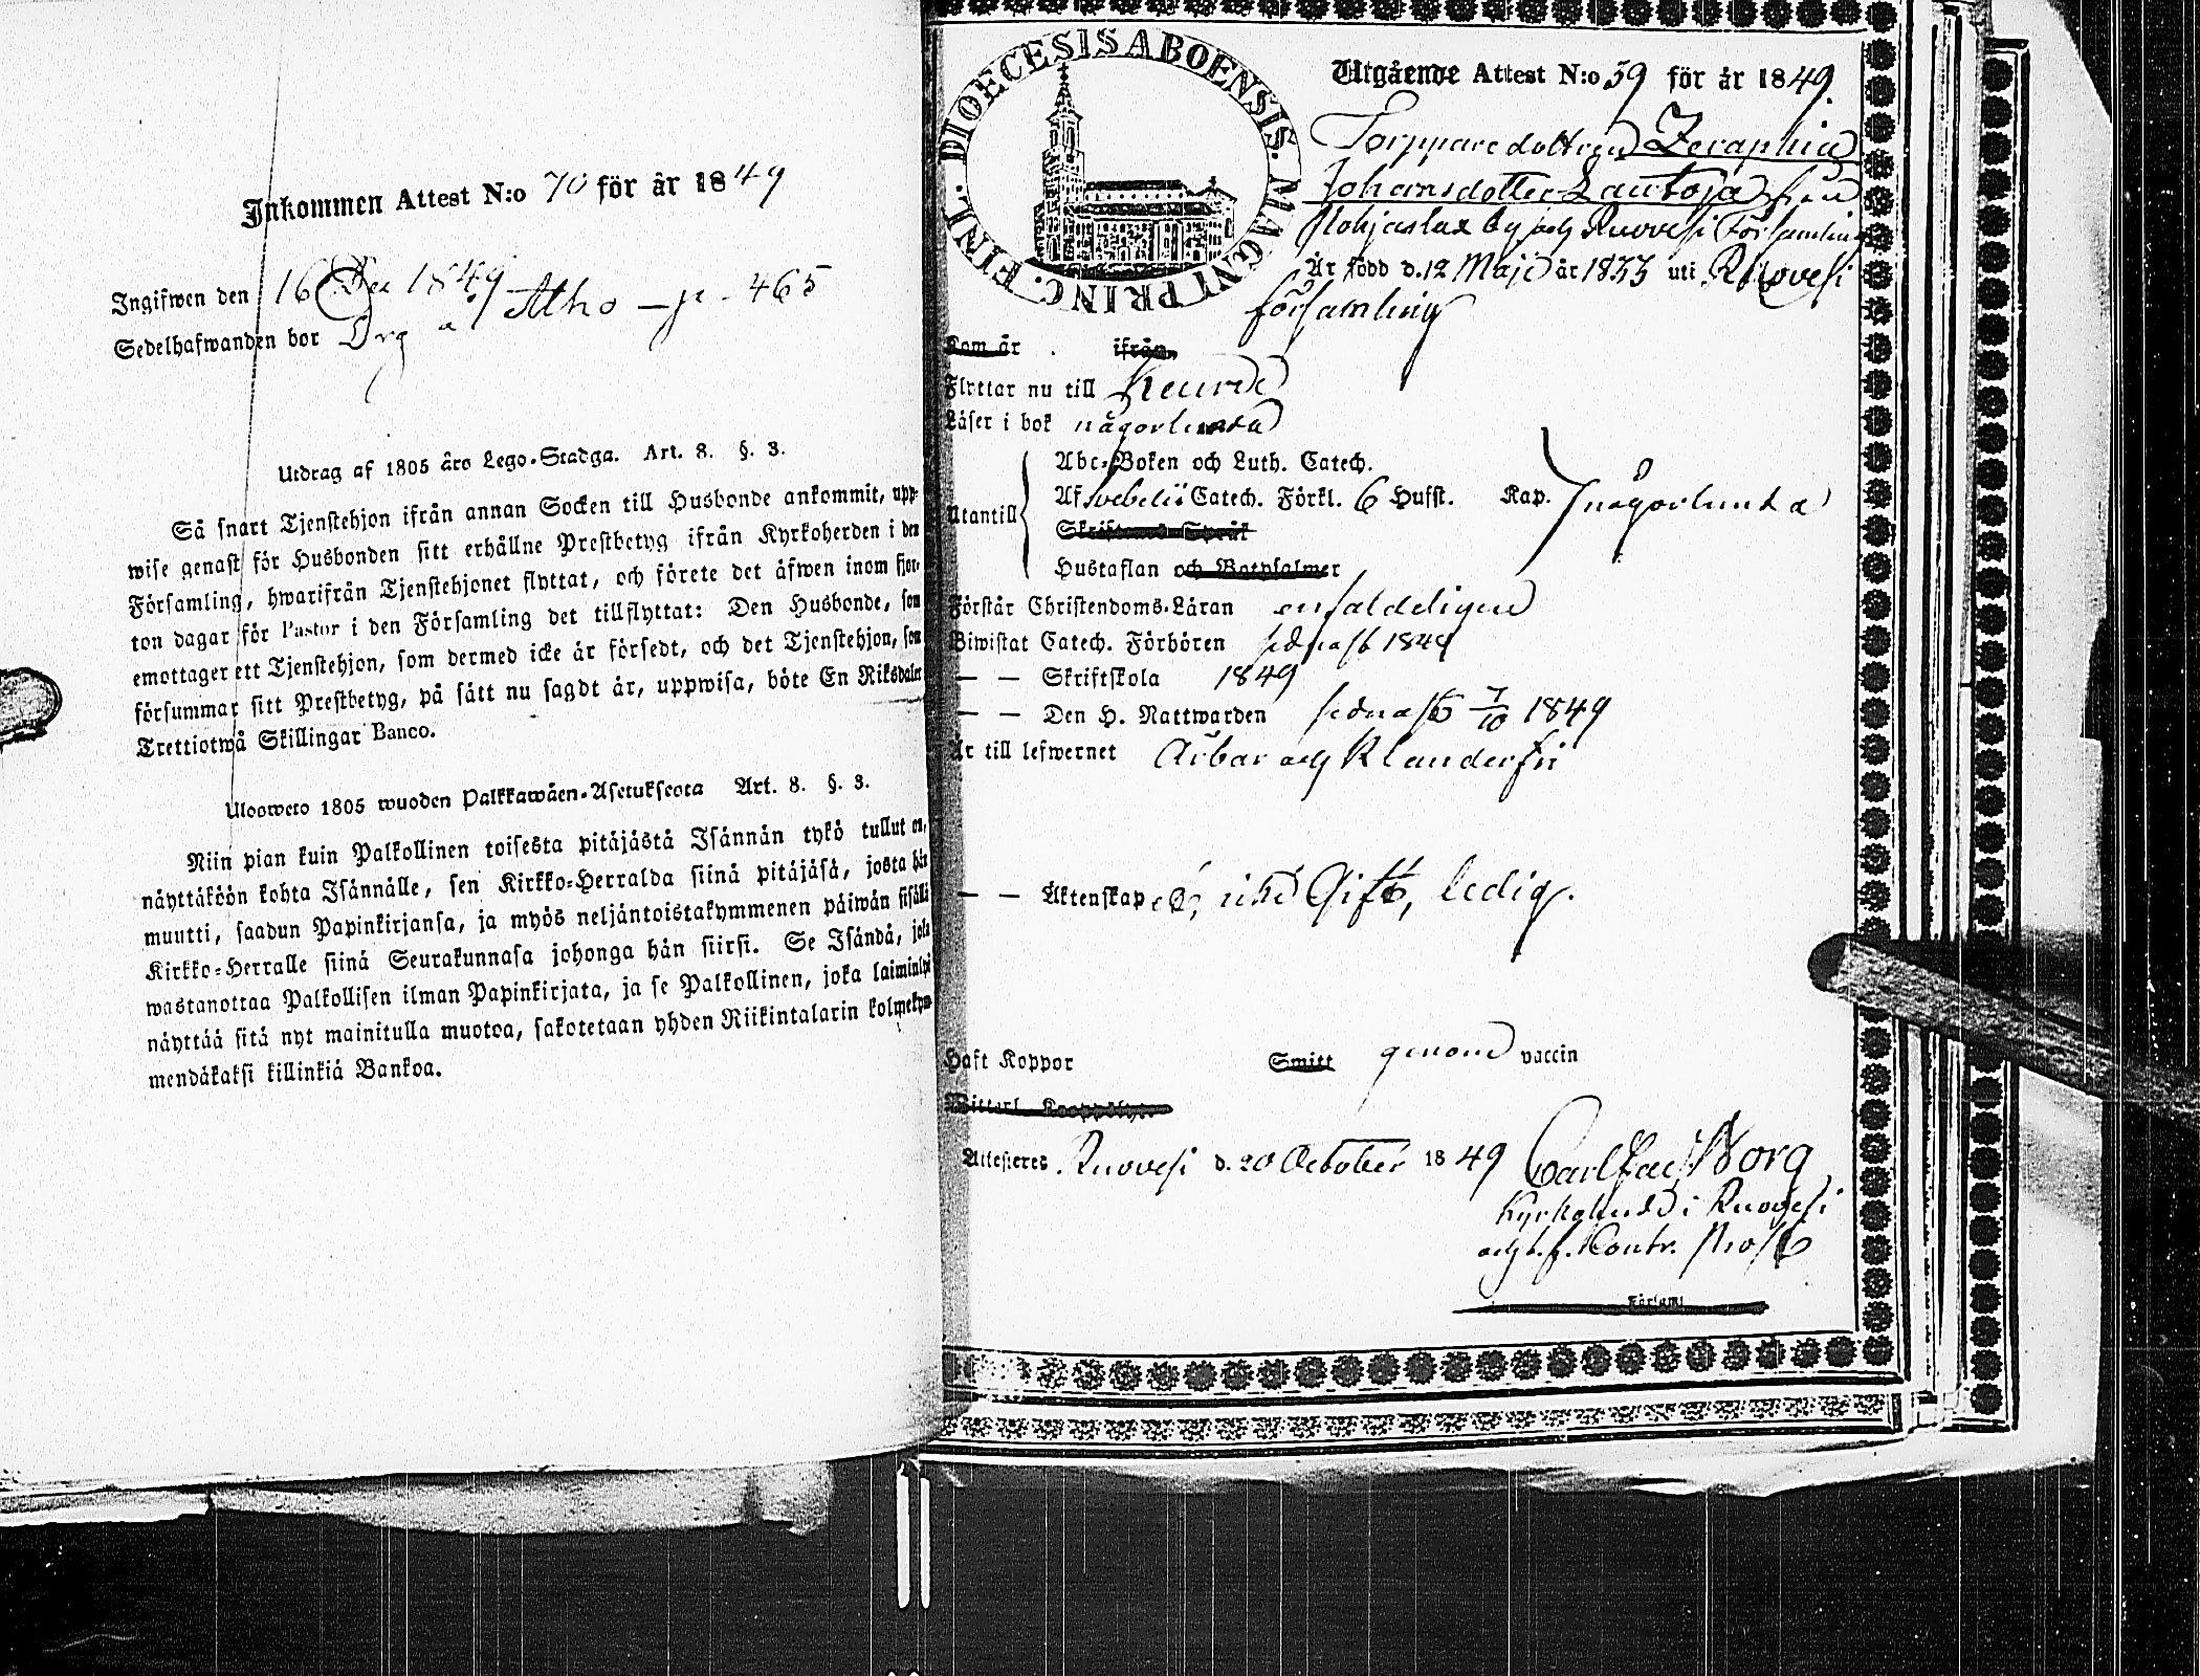 Inkommen Attest N:o 70 för år 1849
Ingifwen den 16 Dec 1849
Sedelhafwanden bor Drg a Alho – p. 465
Utdrag af 1805 års Lego-Stadga. Art. 8. §. 3.
Så snart Tjenstehjon ifrån annan Socken till Husbonde ankommit, upp-
wise genast för Husbonden sitt erhållne Prestbetyg ifrån Kyrkoherden i den
Församling, hwarifrån Tjenstehjonet flyttat, och förete det äfwen inom fjor-
ton dagar för Pastor i den Församling det tillflyttat: Den Husbonde, som
emottager ett Tjenstehjon, som dermed icke är försedt, och det Tjenstehjon, som
försummar sitt Prestbetyg, på sätt nu sagdt är, uppwisa, böte En Riksdaler
Trettiotwå Skillingar Banco.
Ulosweto 1805 wuoden Palkkawäen-Asetuksesta Art. 8. §. 3.
Niin pian kuin Palkollinen toisesta pitäjästä Isännän tykö tullut on,
näyttäköön kohta Isännälle, sen Kirkko-Herralda siinä pitäjäsä, josta hän
muutti, saadun Papinkirjansa, ja myös neljäntoistakymmenen päiwän sisällä
Kirkko-Herralle siinä Seurakunnasa johonga hän siirsi. Se Isändä, joka
wastanottaa Palkollisen ilman Papinkirjata, ja se Palkollinen, joka laiminlyö
näyttää sitä nyt mainitulla muotoa, sakotetaan yhden Riikintalarin kolmekym-
mendäkaksi killinkiä Bankoa.
DIOECESIS ABOENSIS. MAGNI PRINC. FINL.
Utgående Attest N:o 59 för år 1849.
Torppare dottren Zeraphia
Johansdotter Lautoja från
by och Ruovesi Församling
Är född d. 12 Maji år 1833 uti Ruovesi
församling
Kom år . ifrån
Flyttar nu till Keuru
Läser i bok någorlunda
Abc-Boken och Luth. Catech.
Utantill Af Svebelii Catech. Förkl. 6 Hufst. Kap. någorlunda
Skriftenes Språk
Hustaflan och Botpsalmer
Förstår Christendoms-Läran enfaldeligen
Biwistat Catech. Förhören sednast 1849
— — Skriftskola 1849
— — Den H. Nattwarden sednast 7/10 1849
Är till lefwernet Ärbar och Klanderfri
— — Äktenskap ej, icke Gift, ledig.
Haft Koppor Smitt genom vaccin
Attesteres Ruovesi d. 20 October 1849 Carl Borg
Kyrkoherde i Ruovesi
och t.f. Contr. Prost
Församl